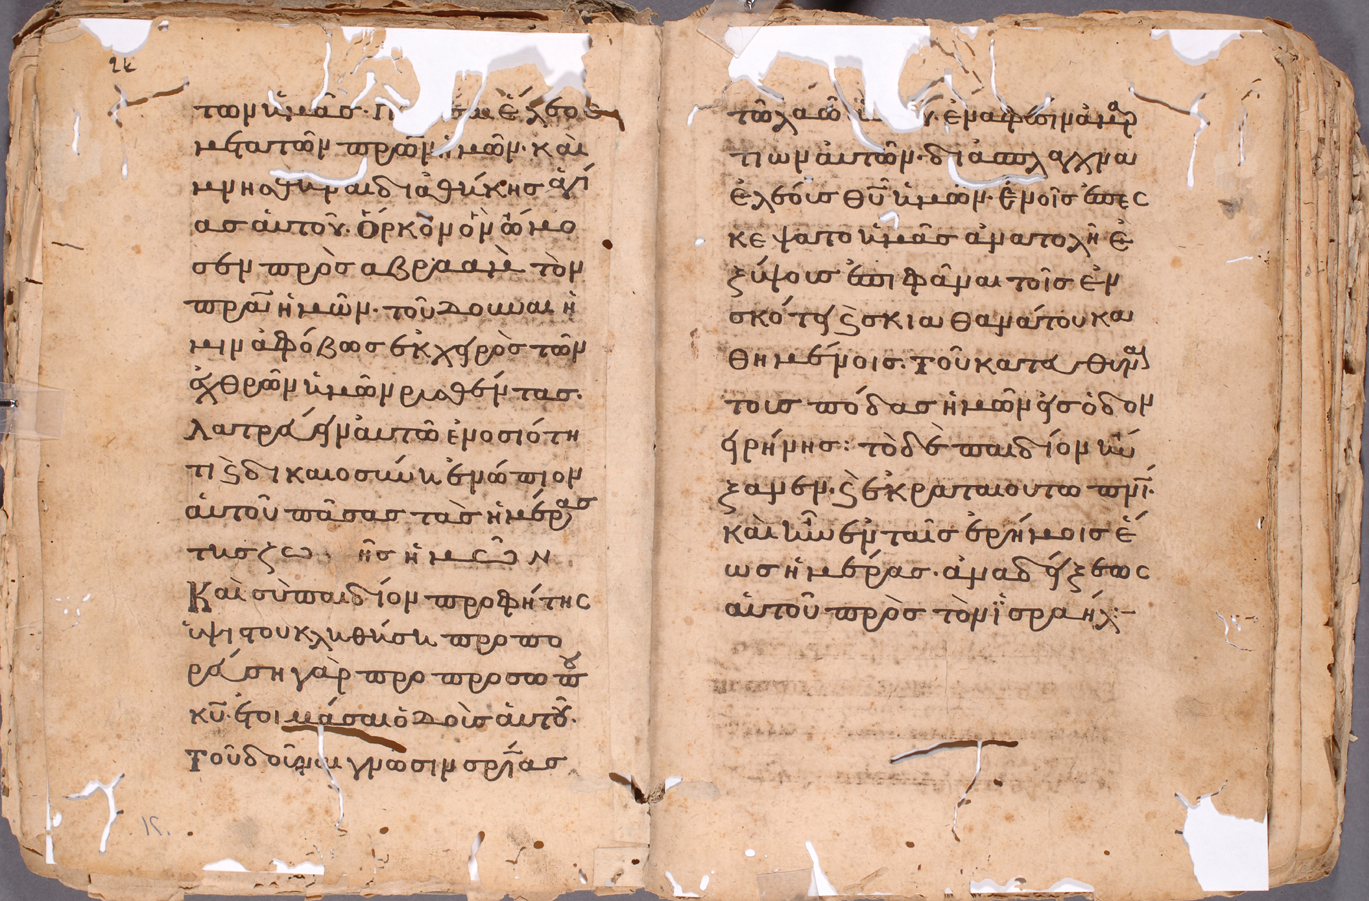 των ἡμᾶς. Π ἔλεος
μετα των πρων ἡμῶν· καὶ
μνησθῆναι διαθήκης ἁγί
ας ἀυτοῦ. ὅρκον ὃν ὤμο
σεν πρὸς αβρααμ τὸν
πρα ἡμῶν. τοῦ δουναι ἡ
μιν ἀφόβως ἐκ χειρὸς τῶν
ἐχθρῶν ἡμῶν ρυσθέντας.
λατρεύειν ἀυτῶ ἐν οσιότη
τι ϗ δικαιοσύνη ἐνώπιον
ἀυτοῦ πᾶσας τὰς ἡμέρας
της ζω ῆς ἡμῶν
Καὶ σὺ παιδίον προφήτης
ὑψιστου κληθήση προπο
ρεύση γὰρ προ προσωπου
κυ· ἑτοιμάσαι ὁδοὺς ἀυτοῦ.
Τοῦ δοῦναι γνωσιν σρίας
τῶ λαῶ ἐν αφέσει ἁμαρ
τιων ἀυτῶν· διὰ σπλαγχνα
ἐλέους θυ ἡμῶν. ἐν οἷς ἐπες
κεψατο ἡμᾶς ἀνατολὴ ἐ
ξ ύψους ἐπιφᾶναι τοῖς ἐν
σκότει ϗ σκια θανάτου κα
θημένοις. Τοῦ κατευθυναι
τους πόδας ἡμῶν εἰς ὁδον
εἰρήνης: τὸ δὲ παιδίον ηὔ
ξανεν. ϗ ἐκραταιουτω πνι.
καὶ ἦν ἐν ταῖς ἐρήμοις ἕ
ως ἡμέρας. ἀναδείξεως
ἀυτοῦ πρὸς τὸν ἰσραήλ:–